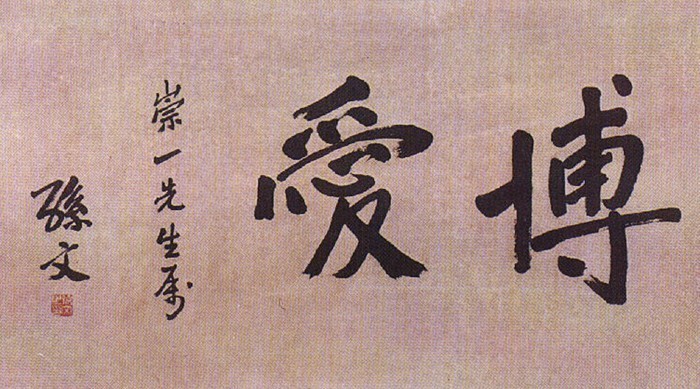 博愛
崇一先生属
孫文